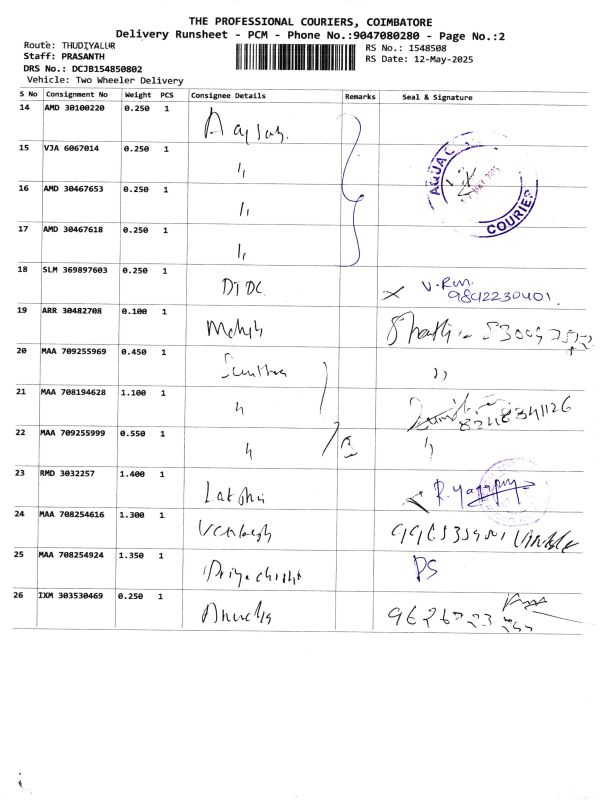 THE PROFESSIONAL COURIERS, COIMBATORE
Delivery Runsheet - PCM - Phone No.:9047080280 - Page No.:2
Route: THUDIYALUR
RS No.: 1548508
Staff: PRASANTH
RS Date: 12-May-2025
DRS No.: DCJB154850802
Vehicle: Two Wheeler Delivery
S No Consignment No Weight PCS Consignee Details Remarks Seal & Signature
14 AMD 30100220 0.250 1
15 VJA 6067014 0.250 1 "
16 AMD 30467653 0.250 1 "
17 AMD 30467618 0.250 1 "
COURIER
18 SLM 369897603 0.250 1 DTDC
9842230401
19 ARR 30482708 0.100 1
20 MAA 709255969 0.450 1 "
21 MAA 708194628 1.100 1 " 8248341126
22 MAA 709255999 0.550 1 " "
23 RMD 3032257 1.400 1
24 MAA 708254616 1.300 1
25 MAA 708254924 1.350 1 PS
26 IXM 303530469 0.250 1